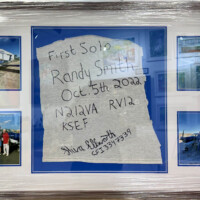 First Solo
Randy Smith
Oct. 5th 2022
N212VA RV12
KSEF
Ellsworth
CFI3397339